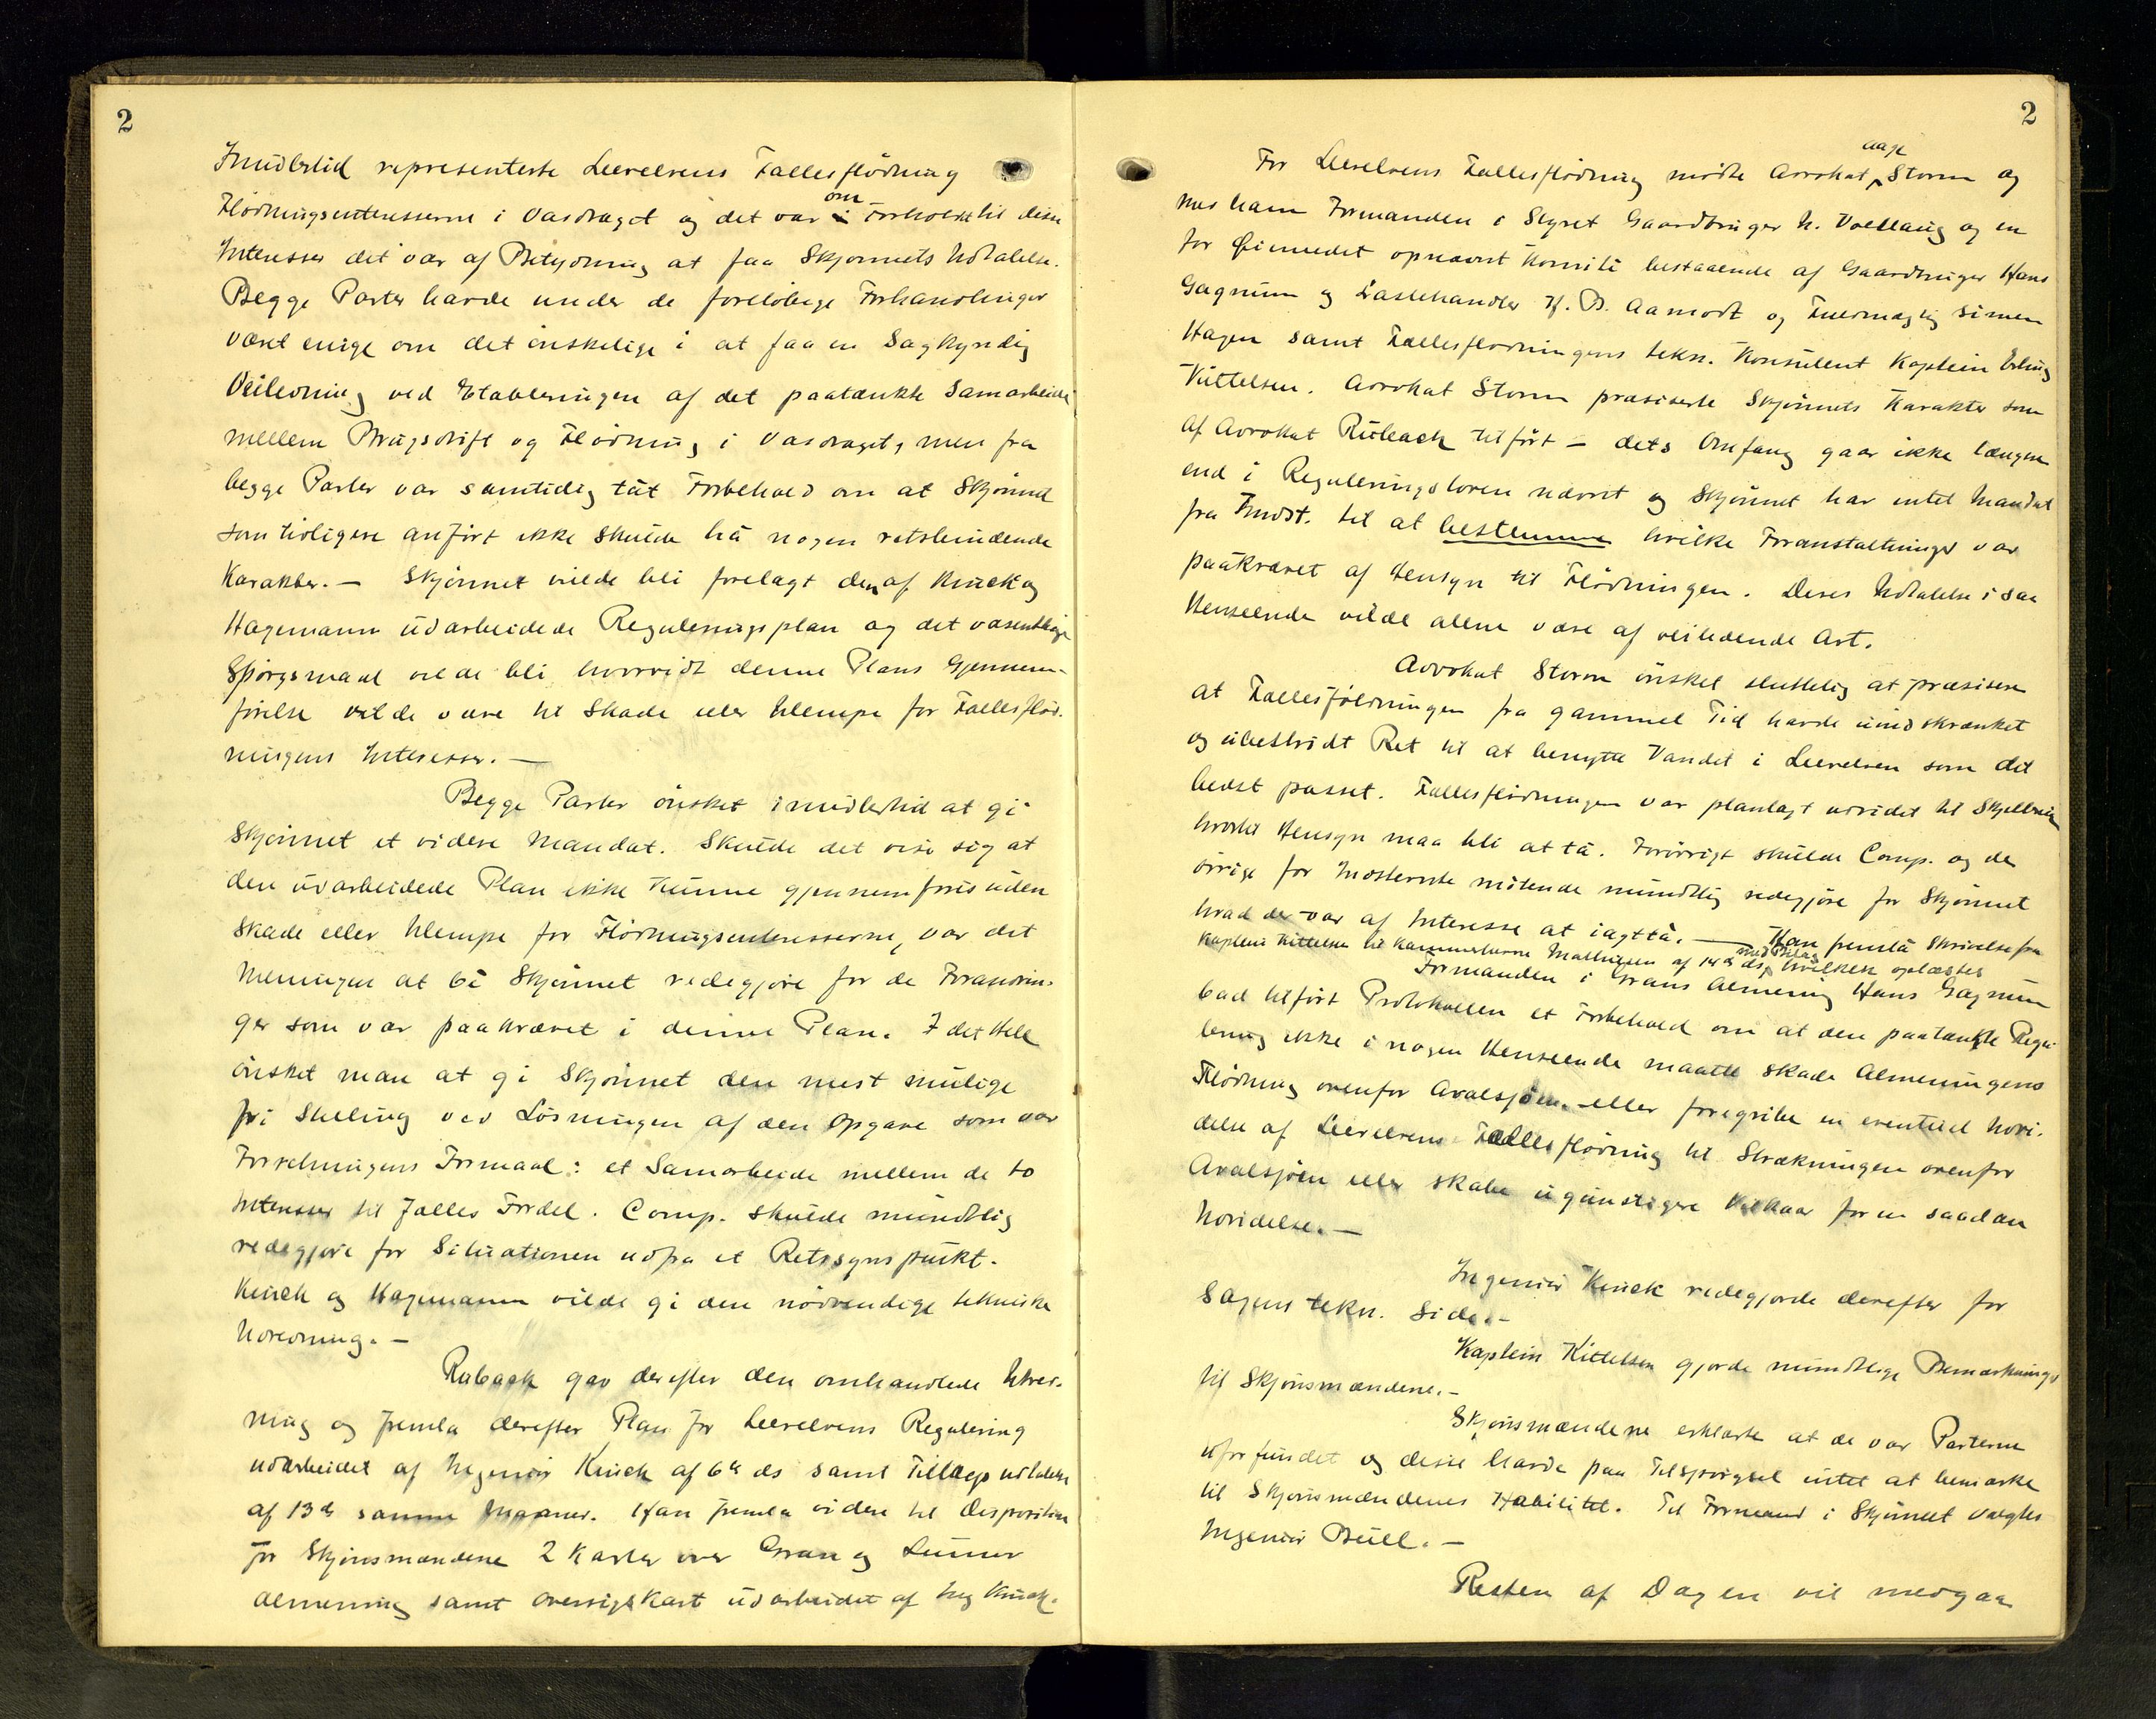 2
Imidlertid representerte Leerelvens Fællesflødning
om
Flødningsinteresserne i Vasdraget og det var i Forholdet til disse
Interesser det var af Betydning at faa Skjønnets Udtalelse.
Begge Parter havde under de foreløbige Forhandlinger
været enige om det ønskelige i at faa en Sagkyndig
Veiledning ved Etableringen af det paatænkte Samarbeide
mellem Brugsdrift og Flødning i Vasdraget, men fra
begge Parter var samtidig tat Forbehold om at Skjønnet
som tidligere anført ikke skulde ha nogen retsbindende
Karakter. — Skjønnet vilde bli forelagt den af Kinck og
Hagemann udarbeidede Reguleringsplan og det væsentlige
Spørgsmaal vilde bli hvorvidt denne Plans Gjennem-
førelse vilde være til Skade eller Ulempe for Fællesflød-
ningens Interesser. —
Begge Parter ønsket imidlertid at gi
Skjønnet et videre Mandat. Skulde det vise sig at
den udarbeidede Plan ikke kunne gjennemføres uden
Skade eller Ulempe for Flødningsinteresserne, var det
Meningen at be Skjønnet redegjøre for de Forandrin-
ger som var paakrævet i denne Plan. I det Hele
ønsket man at gi Skjønnet den mest mulige
fri Stilling ved Løsningen af den Opgave som var
Forretningens Formaal: et Samarbeide mellem de to
Interesser til fælles Fordel. Comp. skulde mundtlig
redegjøre for Situationen udfra et Retssynspunkt.
Kinck og Hagemann vilde gi den nødvendige tekniske
Udredning. —
Ruback gav derefter den omhandlede Utred-
ning og fremla derefter Plan for Leerelvens Regulering
udarbeidet af Ingeniør Kinck af 6te ds samt Tillægsudtalelse
af 13de samme Maaned. Han fremla videre til Disposition
for Skjønsmændene 2 Karter over Gran og Lunner
Almenning samt Oversigtskart udarbeidet af Ing Kinck.
2
Aage
For Leerelvens Fællesflødning mødte Advokat Storm og
med ham Formanden i Styret Gaardbruger N. Vællaug og en
for Øiemedet opnævnt Komité bestaaende af Gaardbruger Hans
Gagnum og Lastehandler H. B. Aamodt og Fuldmægtig Simen
Hagen samt Fællesflødningens tekn. Konsulent Kaptein Erling
Kittelsen. Advokat Storm præciserte Skjønnets Karakter som
af Advokat Ruback tilført — dets Omfang gaar ikke længere
end i Reguleringsloven nævnt og Skjønnet har intet Mandat
fra Indst. til at bestemme hvilke Foranstaltninger var
paakrævet af Hensyn til Flødningen. Deres Udtalelse i saa
Henseende vilde alene være af veiledende Art.
Advokat Storm ønsket sluttelig at præcisere
at Fællesfløldningen fra gammel Tid havde uindskrænket
og ubestridt Ret til at benytte Vandet i Leerelven som det
bedst passet. Fællesflødningen var planlagt utvidet til Skjellbreia
hvortil Hensyn maa bli at ta. Forøvrigt skulde Comp. og de
øvrige for Motparten møtende mundtlig redegjøre for Skjønnet
hvad der var af Interesse at iagtta. — Han fremla Skrivelse fra
Kaptein Kittelsen til Kammerherre Mathiesen af 14de ds, med Bilag hvilken oplæstes
Formanden i Grans Almenning Hans Gagnum
bad tilført Protokollen et Forbehold om at den paatænkte Regu-
lering ikke i nogen Henseende maatte skade Almenningens
Flødning ovenfor Avalsjøen eller foregribe en eventuel Udvi-
delse af Leerelvens Fællesflødning til Strækningen ovenfor
Avalsjøen eller skabe ugunstigere Vilkaar for en saadan
Udvidelse. —
Ingeniør Kinck redegjorde derefter for
Sagens tekn. Side. —
Kaptein Kittelsen gjorde mundtlige Bemærkninger
til Skjønsmændene. —
Skjønsmændene erklærte at de var Parterne
uforbundet og disse havde paa Tilspørgsel intet at bemærke
til Skjønsmændenes Habilitet. Til Formand i Skjønnet valgtes
Ingeniør Bull. —
Resten af Dagen vil medgaa